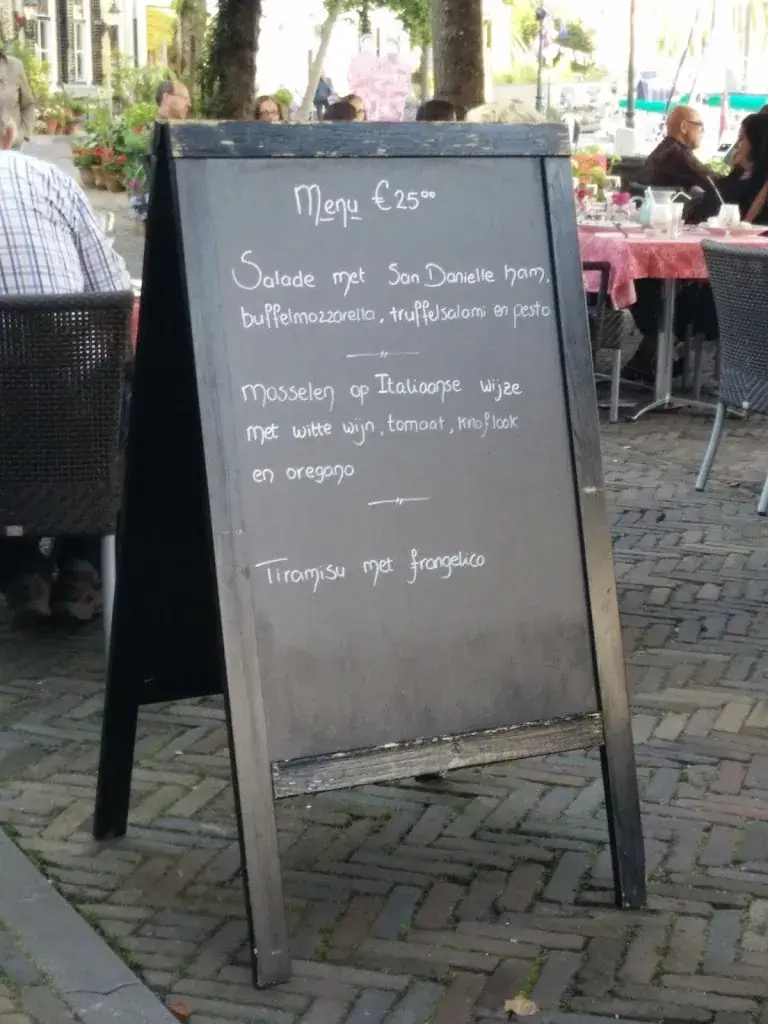 Menu €25⁰⁰
Salade met San Danielle ham,
buffelmozzarella, truffelsalami en pesto
Mosselen op Italiaanse wijze
met witte wijn, tomaat, knoflook
en oregano
Tiramisu met frangelico